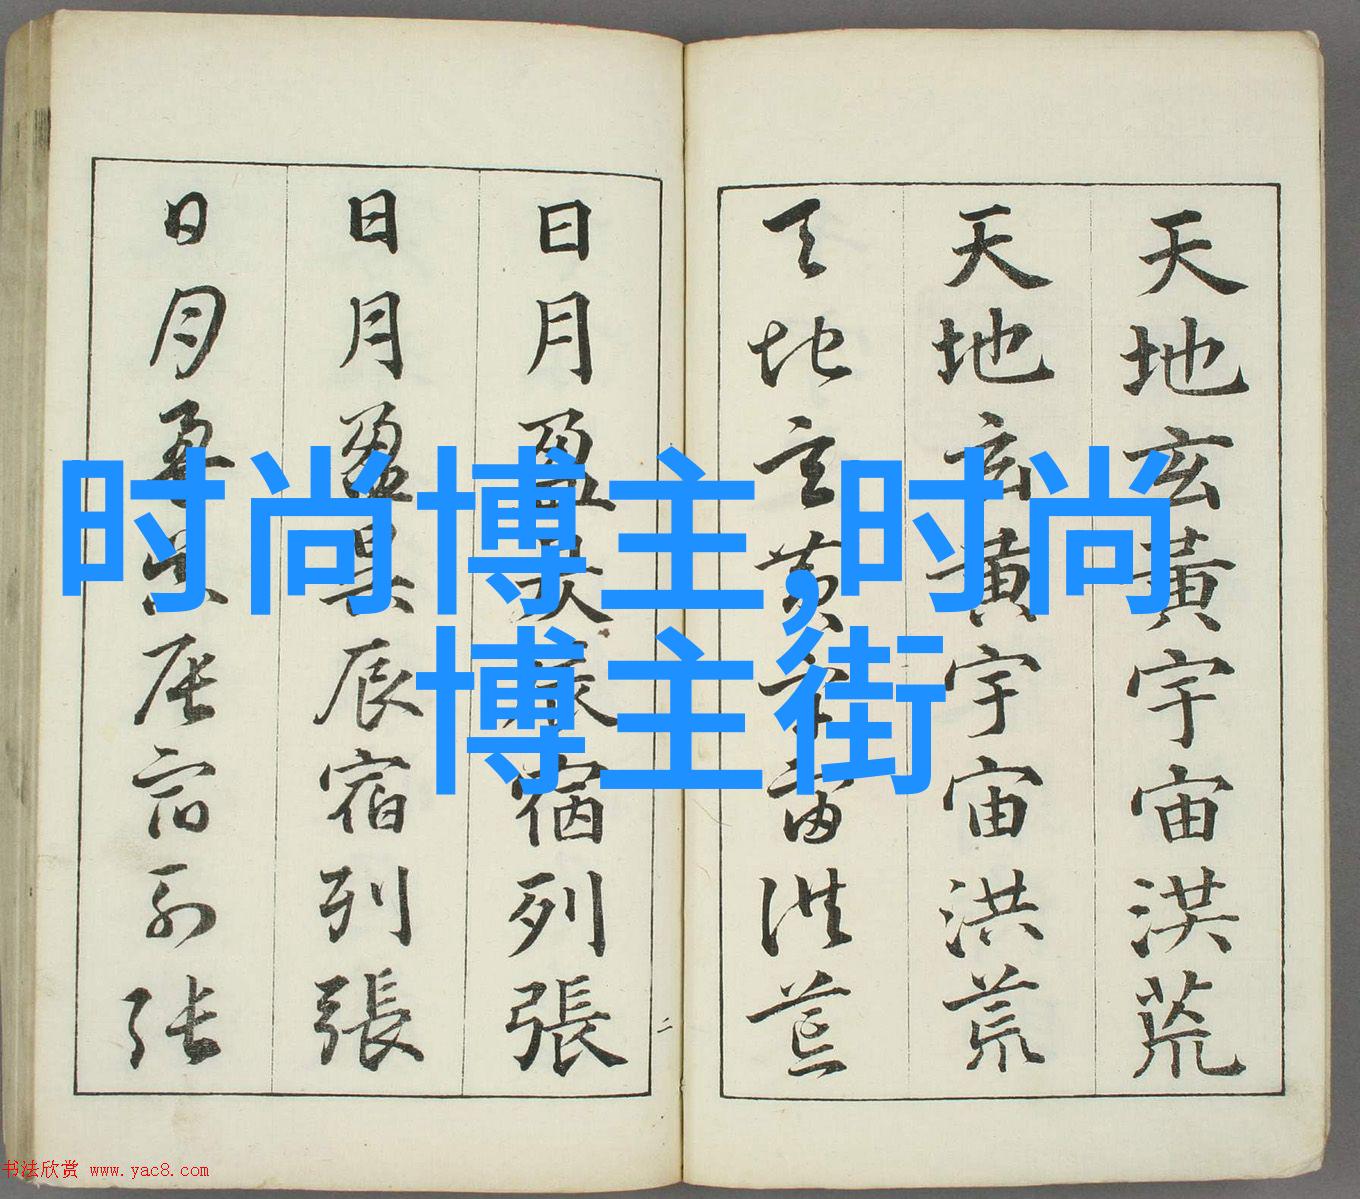 天地玄黃宇宙洪荒
天地玄黃宇宙洪荒
天地玄黃宇宙洪荒
二
日月盈昃辰宿列張
日月盈昃辰宿列張
日月盈昃辰宿列張
时尚博主,时尚
博主街
书法欣赏 www.yac8.com